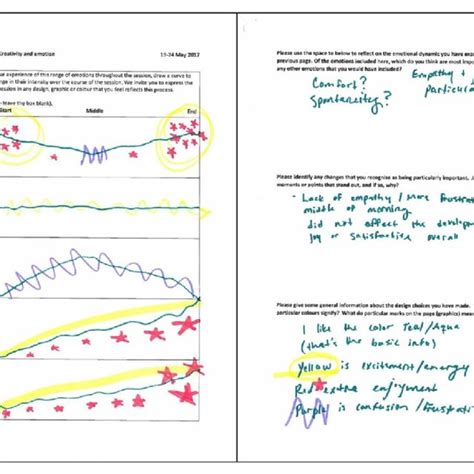 Creativity and emotion
13-24 May 2017
our experience of this range of emotions throughout the session, draw a curve to
nge in their intensity over the course of the session. We invite you to express the
ession in any design, graphic or colour that you feel reflects this process.
leave the box blank).
Start Middle End
Please use the space to below to reflect on the emotional dynamic you have
previous page. Of the emotions included here, which do you think are most
any other emotions that you would have included?
Comfort? Empathy +
Spontaneity? particular
Please identify any changes that you recognise as being particularly important.
moments or points that stand out, and if so, why?
• Lack of empathy / More frustrat
middle of morning
did not effect the develop
joy or satisfaction overall
Please give some general information about the design choices you have made.
particular colours signify? What do particular marks on the page (graphics) mean
I like the color Teal/Aqua
(that's the basic info)
Yellow is excitement/energy
Red extra enjoyment
Purple is confusion/frustrati